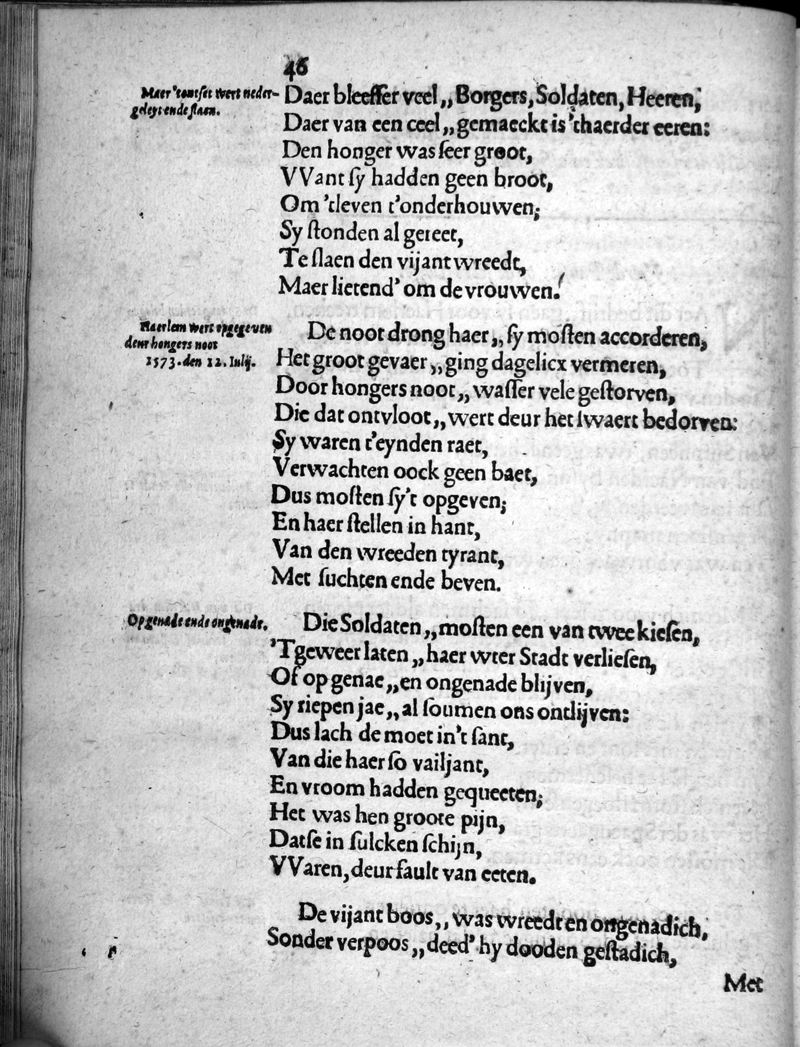 46
Maer 'tontset wert neder-
geleyt ende slaen.
Daer bleeffer veel,, Borgers, Soldaten, Heeren,
Daer van een ceel,, gemaeckt is 'thaerder eeren:
Den honger was seer groot,
VVant sy hadden geen broot,
Om 'tleven t'onderhouwen;
Sy stonden al gereet,
Te slaen den vijant wreedt,
Maer lietend' om de vrouwen.
Haerlem wert opgegeven
deur hongers noot
1573. den 12. Iulij.
De noot drong haer,, sy mosten accorderen,
Het groot gevaer,, ging dagelicx vermeren,
Door hongers noot,, wasser vele gestorven,
Die dat ontvloot,, wert deur het swaert bedorven:
Sy waren t'eynden raet,
Verwachten oock geen baet,
Dus mosten sy't opgeven;
En haer stellen in hant,
Van den wreeden tyrant,
Met suchten ende beven.
Op genade ende ongenade.
Die Soldaten,, mosten een van twee kiesen,
'Tgeweer laten,, haer wter Stadt verliesen,
Of op genae,, en ongenade blijven,
Sy riepen jae,, al soumen ons ondlijven:
Dus lach de moet in't sant,
Van die haer so vailjant,
En vroom hadden gequeeten;
Het was hen groote pijn,
Datse in sulcken schijn,
VVaren, deur fault van eeten.
De vijant boos,, was wreedt en ongenadich,
Sonder verpoos,, deed' hy dooden gestadich,
Met